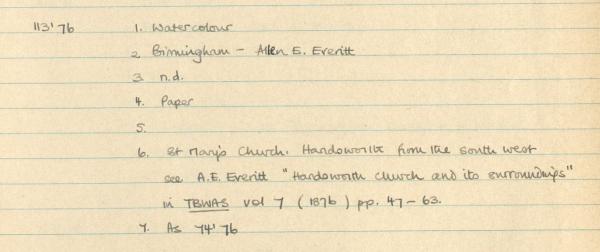 113'76 1. Watercolour
2. Birmingham - Allen E. Everitt
3. n.d.
4. Paper
5.
6. St Mary's Church. Handsworth from the south west
see A.E. Everitt "Handsworth church and its surroundings"
in TBWAS vol 7 (1876) pp. 47-63.
7. As 74'76